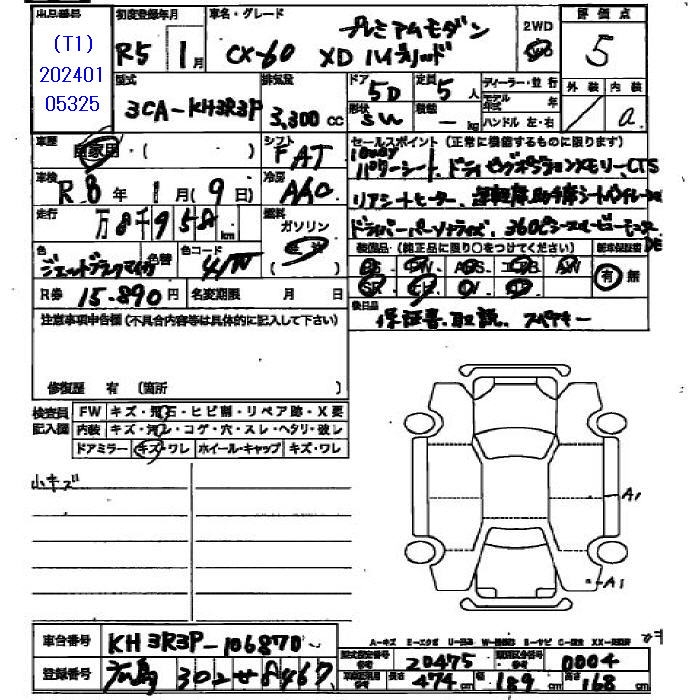 出品番号
(T1)
202401
05325
初度登録年月
R5年 1月
車名・グレード
プレミアムモダン
CX-60 XD ハイブリッド
2WD
評価点
5
型式
3CA-KH3R3P
排気量
3,300 cc
ドア 5D
定員 5人
形状 SW
積載 - kg
ディーラー・並行
モデル年式 年
ハンドル 左・右
外装 内装
a
車歴
自家用・( )
シフト
FAT
セールスポイント(正常に機能するものに限ります)
パワーシート、ドラポジションメモリー、CTS
リアシートヒーター、運転席助手席シートベンチレーション
ドライバーパーソナライズ、360ビューモニター
車検
R8年 1月(9日)
冷房
AAC
走行
万8千958km
燃料
ガソリン
(軽油)
( )
色
ジェットブラックマイカ
色替
色コード
41W
装備品・(純正品に限り○をつけてください)
新車保証書
PS・PW・ABS・エアB・AW
SR・カワ・ナビ・TV
有 無
R券 15,890円
名変期限 月 日
後日品
保証書、取説、スペアキー
注意事項申告欄(不具合内容等は具体的に記入して下さい)
修復歴 有 (箇所 )
検査員記入図
FW キズ・飛石・ヒビ割・リペア跡・X要
内装 キズ・汚レ・コゲ・穴・スレ・ヘタリ・破レ
ドアミラー キズ・ワレ ホイール・キャップ キズ・ワレ
小キズ
A1
A1
車台番号 KH3R3P-106870
登録番号 広島 302 せ 8467
型式指定番号 20475
類別区分番号 0004
長さ 474cm
幅 189cm
高さ 168cm